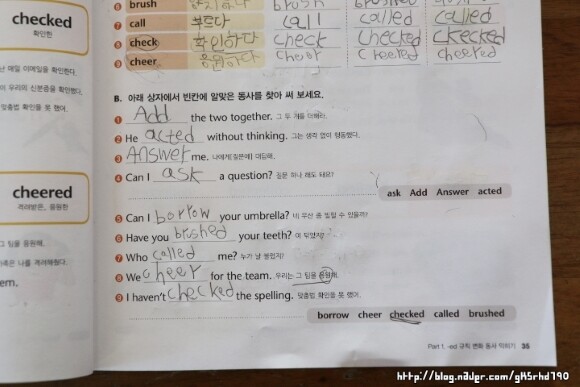 checked
확인한
이 우리의 신분증을 확인했다.
맞춤법 확인을 못 했어.
cheered
격려받은, 응원한
brush
call 부르다 call called called
check 확인하다 check checked ckecked
cheer 응원하다 cheer cheered cheered
B. 아래 상자에서 빈칸에 알맞은 동사를 찾아 써 보세요.
1 Add the two together. 그 두 개를 더해라.
2 He acted without thinking. 그는 생각 없이 행동했다.
3 Answer me. 나에게[질문에] 대답해.
4 Can I ask a question? 질문 하나 해도 돼요?
ask Add Answer acted
5 Can I borrow your umbrella? 네 우산 좀 빌릴 수 있을까?
6 Have you brushed your teeth? 이 닦았니?
7 Who called me? 누가 날 불렀지?
8 We cheer for the team. 우리는 그 팀을 응원해.
9 I haven't checked the spelling. 맞춤법 확인을 못 했어.
borrow cheer checked called brushed
Part 1. -ed 규칙 변화 동사 익히기 35
http://blog.naver.com/gkSrhd790